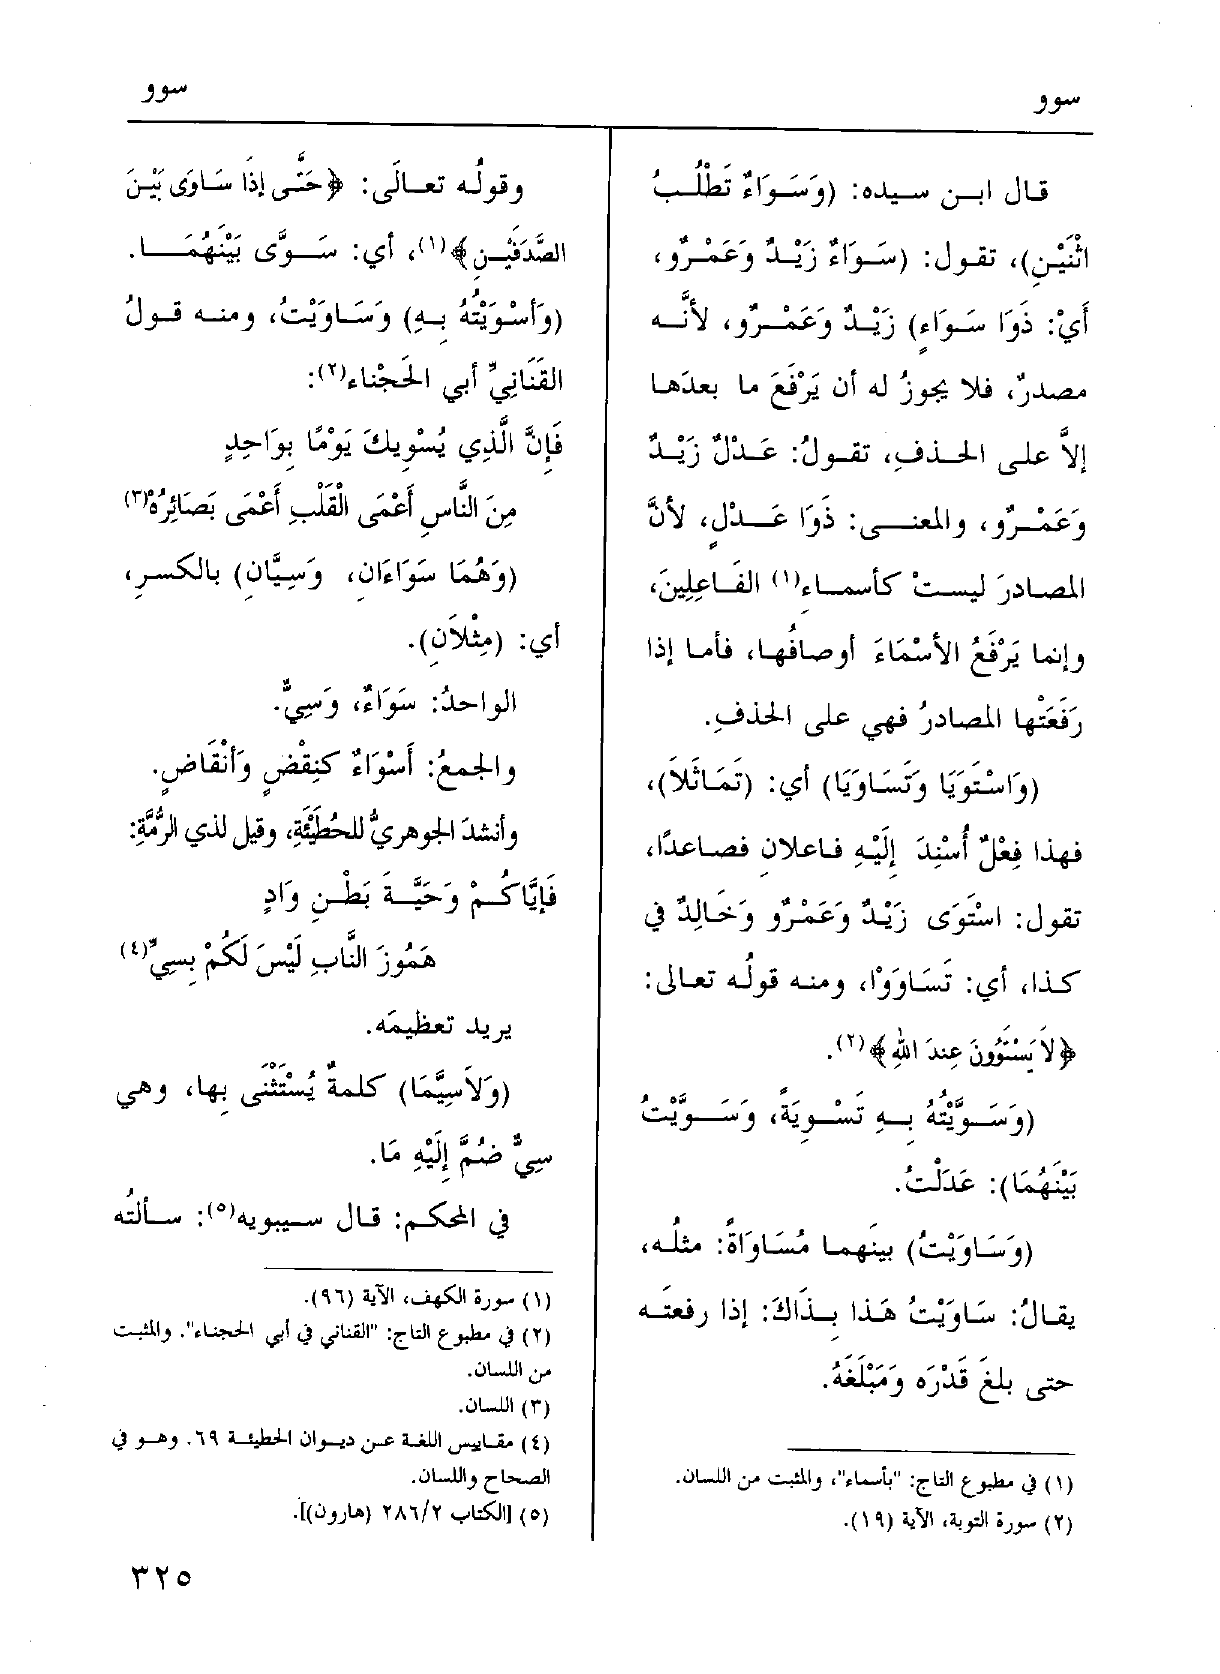 سوو
سوو
قال ابن سيده: (وَسَوَاءٌ تَطْلُبُ
اثْنَيْنِ)، تقول: (سَوَاءٌ زَيْدٌ وَعَمْرٌو،
أَيْ: ذَوَا سَوَاءٍ) زَيْدٌ وَعَمْرٌو، لأنَّه
مصدرٌ، فلا يجوزُ له أن يَرْفَعَ ما بعدَها
إلاَّ على الحذفِ، تقولُ: عَدْلٌ زَيْدٌ
وَعَمْرٌو، والمعنى: ذَوَا عَدْلٍ، لأنَّ
المصادرَ ليستْ كأسماءِ(١) الفَاعِلِينَ،
وإنما يَرْفَعُ الأَسْمَاءَ أوصافُها، فأما إذا
رَفَعَتْها المصادرُ فهي على الحذفِ.
(وَاسْتَوَيَا وَتَسَاوَيَا) أي: (تَمَاثَلاَ)،
فهذا فِعْلٌ أُسْنِدَ إِلَيْهِ فاعلانِ فصاعدًا،
تقول: اسْتَوَى زَيْدٌ وَعَمْرٌو وَخَالِدٌ في
كذا، أي: تَسَاوَوْا، ومنه قولُه تعالى:
﴿لاَ يَسْتَوُونَ عِندَ اللهِ﴾(٢).
(وَسَوَّيْتُهُ بِهِ تَسْوِيَةً، وَسَوَّيْتُ
بَيْنَهُمَا): عَدَلْتُ.
(وَسَاوَيْتُ) بينَهما مُسَاوَاةً: مثلُه،
يقالُ: سَاوَيْتُ هَذا بِذَاكَ: إذا رفعتَه
حتى بلغَ قَدْرَه وَمَبْلَغَهُ.
(١) في مطبوع التاج: "بأسماء"، والمثبت من اللسان.
(٢) سورة التوبة، الآية (١٩).
وقولُه تعالَى: ﴿حَتَّى إِذَا سَاوَى بَيْنَ
الصَّدَفَيْنِ﴾(١)، أي: سَوَّى بَيْنَهُمَا.
(وَأَسْوَيْتُهُ بِهِ) وَسَاوَيْتُ، ومنه قولُ
القَنَانِيِّ أبي الحَجْناء(٢):
فَإِنَّ الَّذِي يُسْوِيكَ يَوْمًا بِوَاحِدٍ
مِنَ النَّاسِ أَعْمَى الْقَلْبِ أَعْمَى بَصَائِرُهْ(٣)
(وَهُمَا سَوَاءَانِ، وَسِيَّانِ) بالكسرِ،
أي: (مِثْلاَنِ).
الواحدُ: سَوَاءٌ، وَسِيٌّ.
والجمعُ: أَسْوَاءٌ كنِقْضٍ وَأَنْقَاضٍ.
وأنشدَ الجوهريُّ للحُطَيْئَةِ، وقيل لذي الرُّمَّةِ:
فَإِيَّاكُمْ وَحَيَّةَ بَطْنِ وَادٍ
هَمُوزَ النَّابِ لَيْسَ لَكُمْ بِسِيِّ(٤)
يريد تعظيمَه.
(وَلاَسِيَّمَا) كلمةٌ يُسْتَثْنَى بِها، وهي
سِيٌّ ضُمَّ إِلَيْهِ مَا.
في المحكم: قال سيبويه(٥): سألتُه
(١) سورة الكهف، الآية (٩٦).
(٢) في مطبوع التاج: "القناني في أبي الحجناء". والمثبت
من اللسان.
(٣) اللسان.
(٤) مقاييس اللغة عن ديوان الحطيئة ٦٩. وهو في
الصحاح واللسان.
(٥) [الكتاب ٢٨٦/٢ (هارون)].
٣٢٥